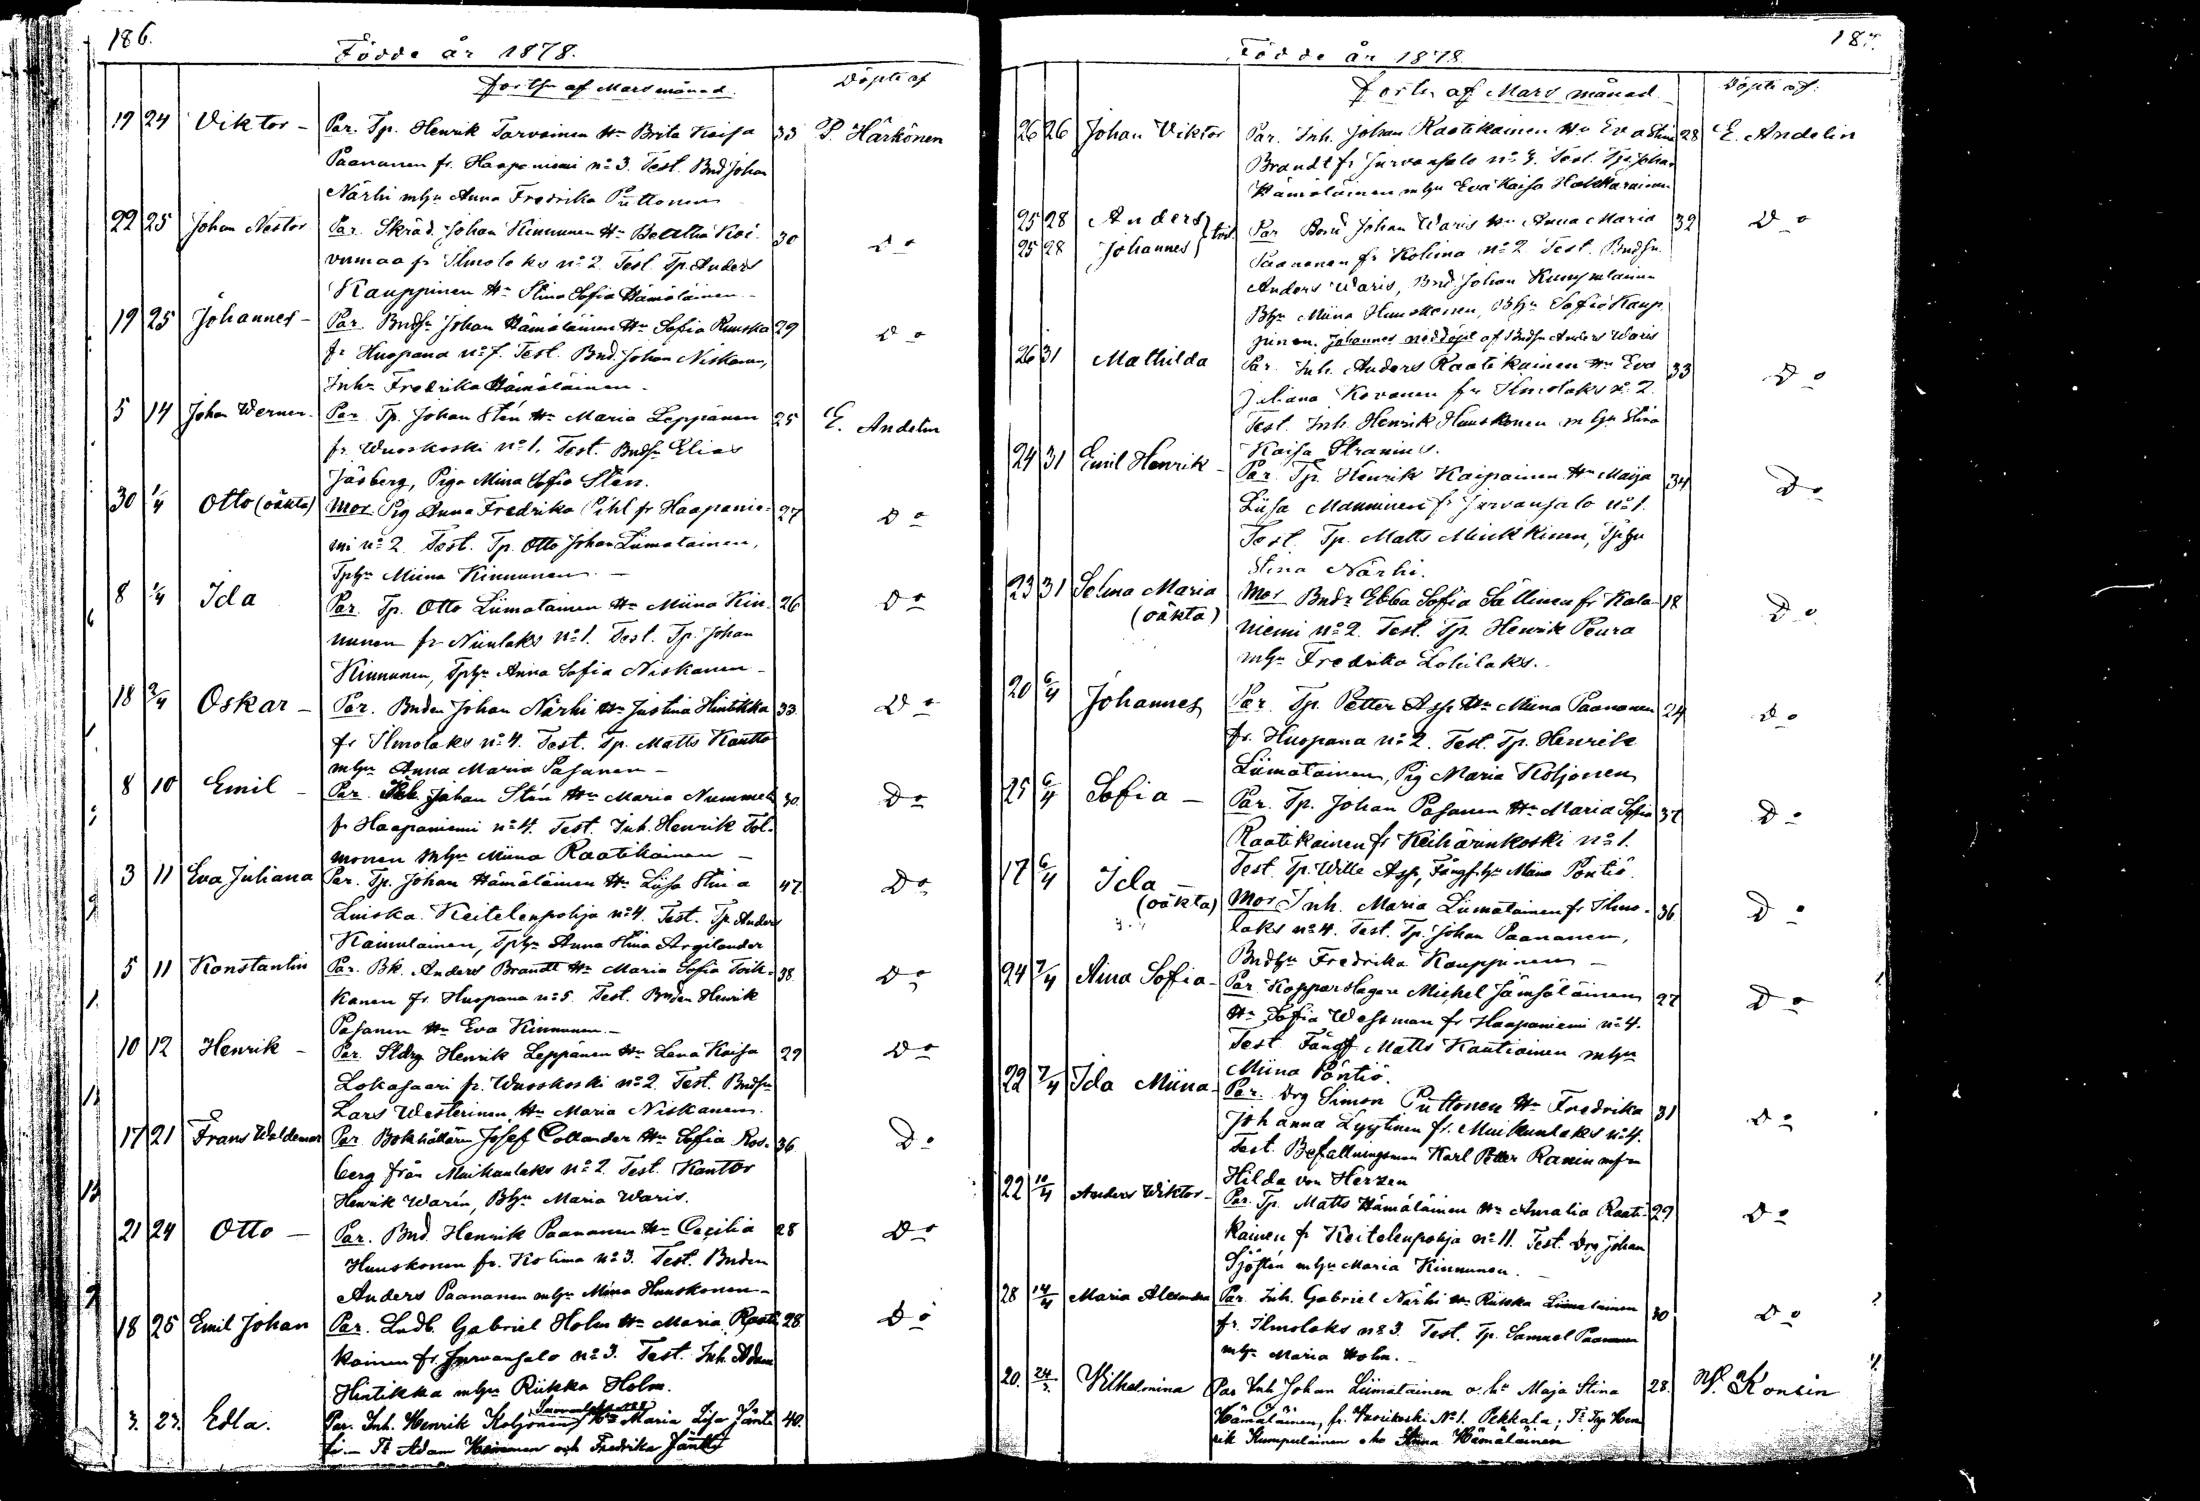 186.
Födde år 1878.
fortsn af Mars månad. Döpte af
19 24 Viktor – Par. Tp. Henrik Tarvainen Hn Brita Kaisa 33 P. Härkönen
Paananen fr. Haapaniemi no 3. Test. Bnd Johan
Närhi mhu Anna Fredrika Puttonen
22 25 Johan Nestor Par. Skräd. Johan Kinnunen Hn Beatha Koi- 30 Do
vumaa fr Ilmolaks no 2. Test. Tp. Anders
Kauppinen Hn Stina Sofia Hämäläinen –
19 25 Johannes – Par. Bndsn Johan Hämäläinen Hn Sofia Ruuska 29 Do
fr Huopana no 7. Test. Bnd. Johan Niskanen,
Inhn Fredrika Hämäläinen –
5 14 Johan Werner – Par. Tp. Johan Stén Hn Maria Leppänen 25 E. Andelin
fr. Wuoskoski no 1. Test. Bndsn Elias
Jäsberg, Piga Mina Sofia Sten.
30 1/4 Otto (oäkta) Mor Pig Anna Fredrika Pihl fr Haapanie- 27 Do
mi no 2. Test. Tp. Otto Johan Liimatainen,
Tphu Miina Kinnunen. –
8 1/4 Ida Par. Tp. Otto Liimatainen Hn Miina Kin- 26 Do
nunen fr Niinilaks no 1. Test. Tp. Johan
Kinnunen, Tphu Anna Sofia Niskanen –
18 2/4 Oskar – Par. Bnden Johan Närhi Hn Justina Hintikka 33 Do
fr Ilmolaks no 4. Test. Tp. Matts Kautto
mhu Anna Maria Pasanen –
8 10 Emil – Par. Inh. Johan Stén Hn Maria Nummela 30 Do
fr Haapaniemi no 4. Test. Inh. Henrik Tol-
monen mhu Miina Raatikainen –
3 11 Eva Juliana Par. Tp. Johan Hämäläinen Hn Liisa Stina 47 Do
Luiska. Keitelenpohja no 4. Test. Tp. Anders
Kainulainen, Tphu Anna Stina Argilander
5 11 Konstantin Par. Bk. Anders Brandt Hn Maria Sofia Toik- 38 Do
kanen fr. Huopana no 5. Test. Bnden Henrik
Pasanen Hn Eva Kinnunen –
10 12 Henrik – Par. Sldrg Henrik Leppänen Hn Lena Kaisa 29 Do
Lokasaari fr. Wuoskoski no 2. Test. Bndsn
Lars Westerinen Hn Maria Niskanen.
17 21 Frans Waldemar Par Bokhållarn Josef Collander Hn Sofia Ros- 36 Do
berg från Muikunlaks no 2. Test. Kantor
Henrik Warén, Bhu Maria Waris.
21 24 Otto – Par. Bnd. Henrik Paananen Hn Cecilia 28 Do
Huuskonen fr. Kolima no 3. Test. Bnden
Anders Paananen mhu Mina Huuskonen –
18 25 Emil Johan Par. Lndb. Gabriel Holm Hn Maria Raati- 28 Do
kainen fr. Jurvansalo no 3. Test. Inh. Adam
Hintikka mhu Riikka Holm.
3. 23. Edla. Par. Inh. Henrik Koljonen Hn Maria Lisa Jänt- 40.
ti – Tt Adam Kinnunen och Fredrika Jäntti
187.
Födde år 1878.
fortsn af Mars månad. Döpte af
26 26 Johan Viktor Par. Inh. Johan Raatikainen Hn Eva Stina 28 E. Andelin
Brandt fr Jurvansalo no 3. Test. Tp. Johan
Hämäläinen mhu Eva Kaisa Häkkarainen
25 28 Anders } tvil. Par Bond Johan Waris Hn Anna Maria 32 Do
25 28 Johannes Paananen fr Kolima no 2. Test. Bndsn
Anders Waris, Bnd. Johan Kumpulainen
Bhu Miina Huuskonen, Bhu Sofia Kaup-
pinen. Johannes nöddöpt af Bndsn Anders Waris
26 31 Mathilda Par. Inh. Anders Raatikainen Hn Eva 33 Do
Juliana Kovanen fr Ilmolaks no 2.
Test. Inh. Henrik Huuskonen mhu Stina
Kaisa Stranius.
24 31 Emil Henrik – Par. Tp. Henrik Kaipainen Hn Maija 34 Do
Liisa Manninen fr Jurvansalo no 1.
Test. Tp. Matts Minkkinen, Tphu
Stina Närhi.
23 31 Selma Maria Mor Bndr Ebba Sofia Sällinen fr Kala- 18 Do
(oäkta) niemi no 2. Test. Tp. Henrik Peura
mhu Fredrika Lohilaks.
20 6/4 Johannes Par. Tp. Petter Asp Hn Miina Paananen 24 Do
fr. Huopana no 2. Test. Tp. Henrik
Liimatainen, Pig Maria Koljonen
25 6/4 Sofia – Par. Tp. Johan Pasanen Hn Maria Sofia 37 Do
Raatikainen fr Keihärinkoski no 1.
Test. Tp. Wille Asp, Fångf.hu Miina Pöntiö.
17 6/4 Ida – Mor Inh. Maria Liimatainen fr Ilmo- 36 Do
(oäkta) laks no 4. Test. Tp. Johan Paananen,
Bndhu Fredrika Kauppinen –
24 7/4 Aina Sofia – Par. Kopparslagare Michel Jämsäläinen 27 Do
Hn Sofia Wessman fr Haapaniemi no 4.
Test Fångf Matts Kautiainen mhu
Miina Pöntiö.
22 7/4 Ida Miina – Par. Drg Simon Puttonen Hn Fredrika 31 Do
Johanna Lyytinen fr. Muikunlaks no 4.
Test. Befallningsman Karl Petter Ranin mfn
Hilda von Herzen
22 10/4 Anders Wiktor – Par. Tp. Matts Hämäläinen Hn Amalia Raati- 29 Do
kainen fr Keitelenpohja no 11. Test. Drg Johan
Sjöstén mhu Maria Kinnunen. –
28 14/4 Maria Alexandra Par. Inh. Gabriel Närhi Hn Riikka Liimatainen 30 Do
fr. Ilmolaks no 3. Test. Tp. Samuel Paananen
mhu Maria Holm. –
20. 24/3. Vilhelmina Par Inh Johan Liimatainen o. hu Maja Stina 28. W. Konsin
Hämäläinen, fr. Vuorikoski No 1. Pekkala; Tt Tp Hen
rik Kumpulainen o ho Stina Hämäläinen